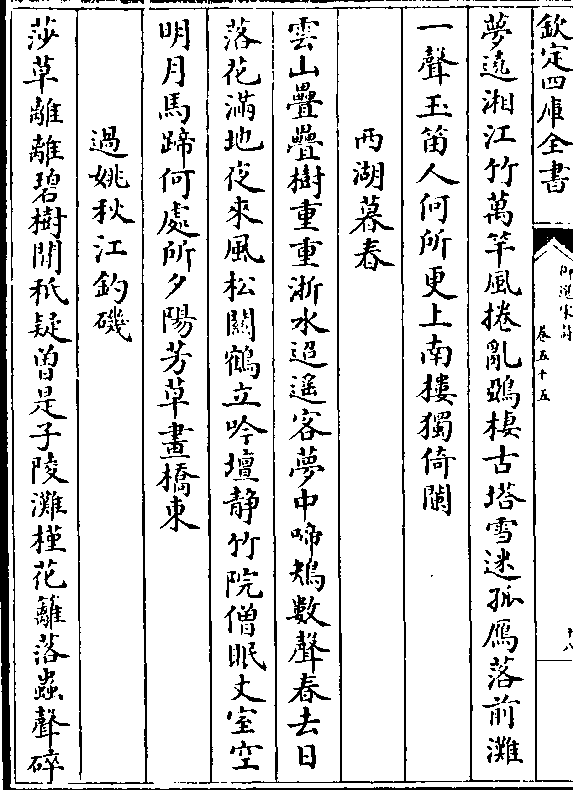 欽定四庫全書
御選宋詩
卷五十五
十八
夢遶湘江竹萬竿風捲亂鴉棲古塔雪迷孤鴈落前灘
一聲玉笛人何所更上南樓獨倚闌
西湖暮春
雲山疊疊樹重重浙水迢遥客夢中啼鴂數聲春去日
落花滿地夜來風松關鶴立吟壇静竹院僧眠丈室空
明月馬蹄何處所夕陽芳草畫橋東
過姚秋江釣磯
莎草離離碧樹間秖疑曽是子陵灘槿花籬落蟲聲碎